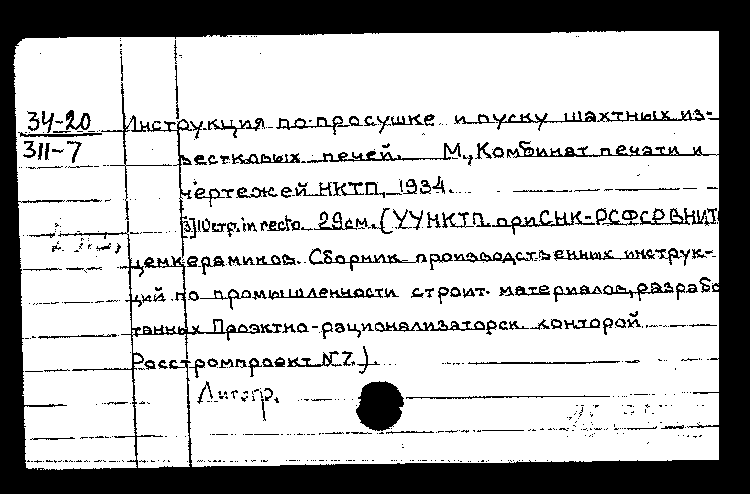 34-20 Инструкция по просушке и пуску шахтных из-
311-7 вестковых печей. М., Комбинат печати и
чертежей НКТП, 1934.
[3]10 стр. in recto. 29 см. (УУНКТП при СНК-РСФСР ВНИТ
цемкерамиков. Сборник производственных инструк-
ций по промышленности строит. материалов, разрабо
танных Проэктно-рационализаторск. конторой
Росстромпроект №7.).
Литогр.